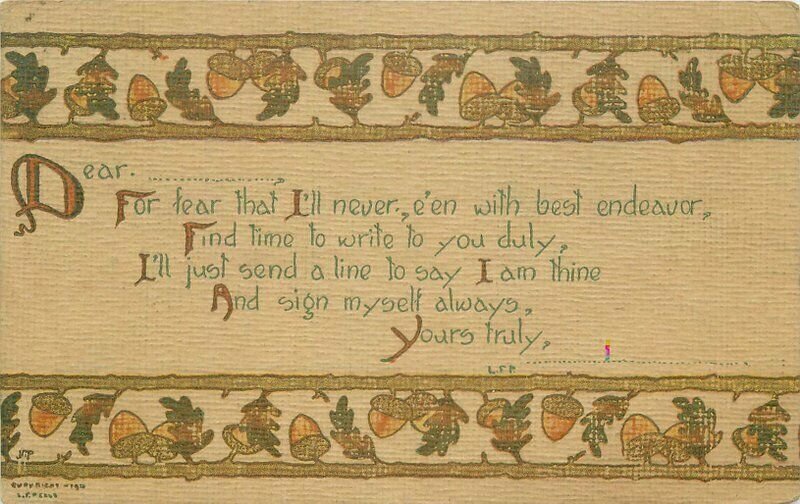 Dear
For fear that I'll never, e'en with best endeavor,
Find time to write to you duly,
I'll just send a line to say I am thine
And sign myself always,
Yours truly,
L.F.P.
COPYRIGHT
L.F. PEASE